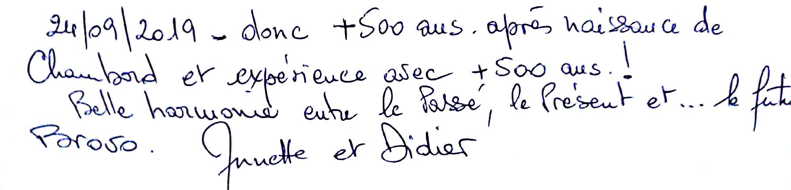 24/09/2019 - donc +500 ans. après naissance de
Chambord et expérience avec +500 ans.!
Belle harmonie entre le Passé, le Présent et... le fut
Bravo. Annette et Didier